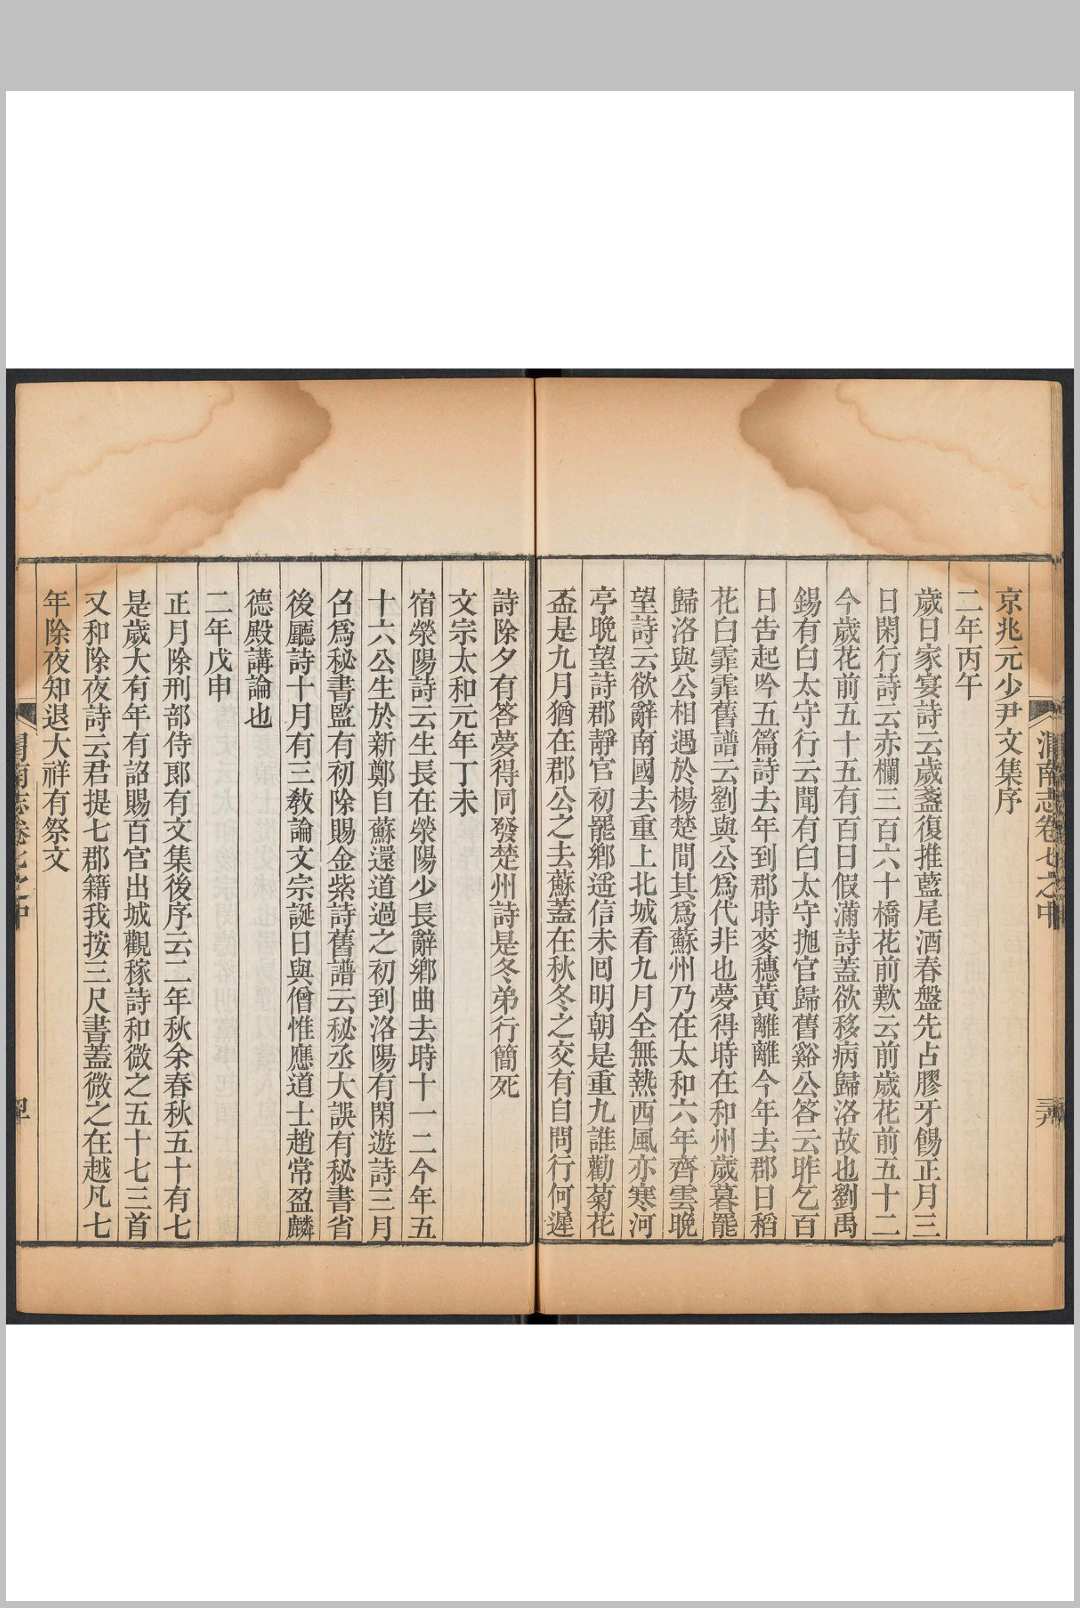 渭南志卷七之中
京兆元少尹文集序
二年丙午
歲日家宴詩云歲盞復推藍尾酒春盤先占膠牙餳正月三
日閑行詩云赤欄三百六十橋花前歎云前歲花前五十二
今歲花前五十五有百日假滿詩蓋欲移病歸洛故也劉禹
錫有白太守行云聞有白太守抛官歸舊谿公答云昨乞百
日告起吟五篇詩去年到郡時麥穗黃離離今年去郡日稻
花白霏霏舊譜云劉與公爲代非也夢得時在和州歲暮罷
歸洛與公相遇於楊楚間其爲蘇州乃在太和六年齊雲晚
望詩云欲辭南國去重上北城看九月全無熱西風亦寒河
亭晚望詩郡靜官初罷鄉遥信未囘明朝是重九誰勸菊花
盃是九月猶在郡公之去蘇蓋在秋冬之交有自問行何遲
詩除夕有答夢得同發楚州詩是冬弟行簡死
文宗太和元年丁未
宿滎陽詩云生長在滎陽少長辭鄉曲去時十一二今年五
十六公生於新鄭自蘇還道過之初到洛陽有閑遊詩三月
召爲秘書監有初除賜金紫詩舊譜云秘丞大誤有秘書省
後廳詩十月有三敎論文宗誕日與僧惟應道士趙常盈麟
德殿講論也
二年戊申
正月除刑部侍郎有文集後序云二年秋余春秋五十有七
是歲大有年有詔賜百官出城觀稼詩和微之五十七三首
又和除夜詩云君提七郡籍我按三尺書蓋微之在越凡七
年除夜知退大祥有祭文
渭南志卷七之中